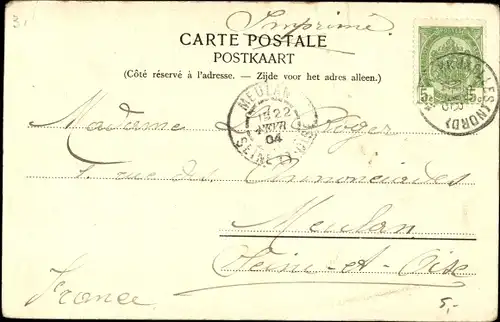 3.
Imprimé.
CARTE POSTALE
POSTKAART
(Côté réservé à l'adresse. — Zijde voor het adres alleen.)
5 5
(NORD)
MEULAN
22
04
SEINE-ET-OISE
Madame Roger
1. rue des Annonciades
Meulan
Seine-et-Oise
France
5,-